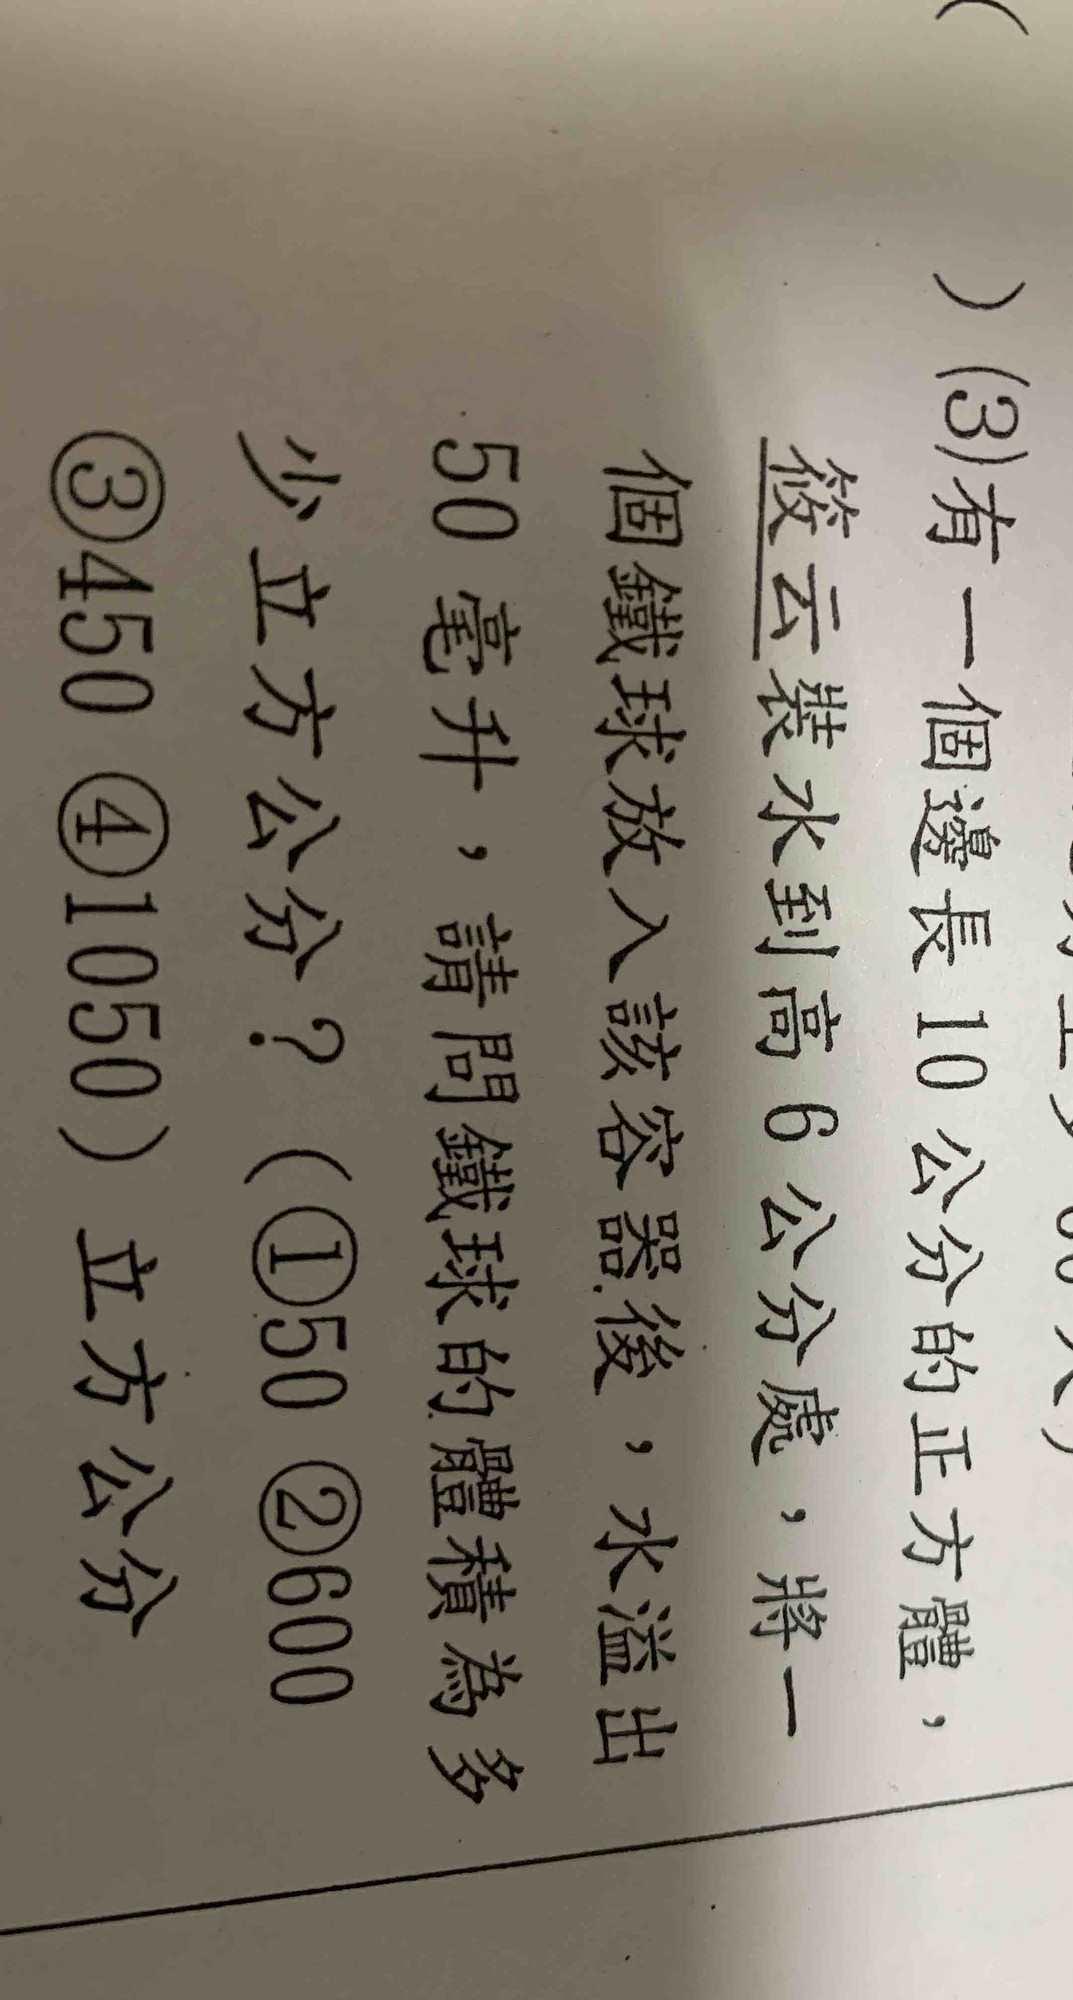 (
) (3)有一個邊長 10 公分的正方體，
筱云裝水到高 6 公分處，將一
個鐵球放入該容器後，水溢出
50 毫升，請問鐵球的體積為多
少立方公分？（①50 ②600
③450 ④1050）立方公分